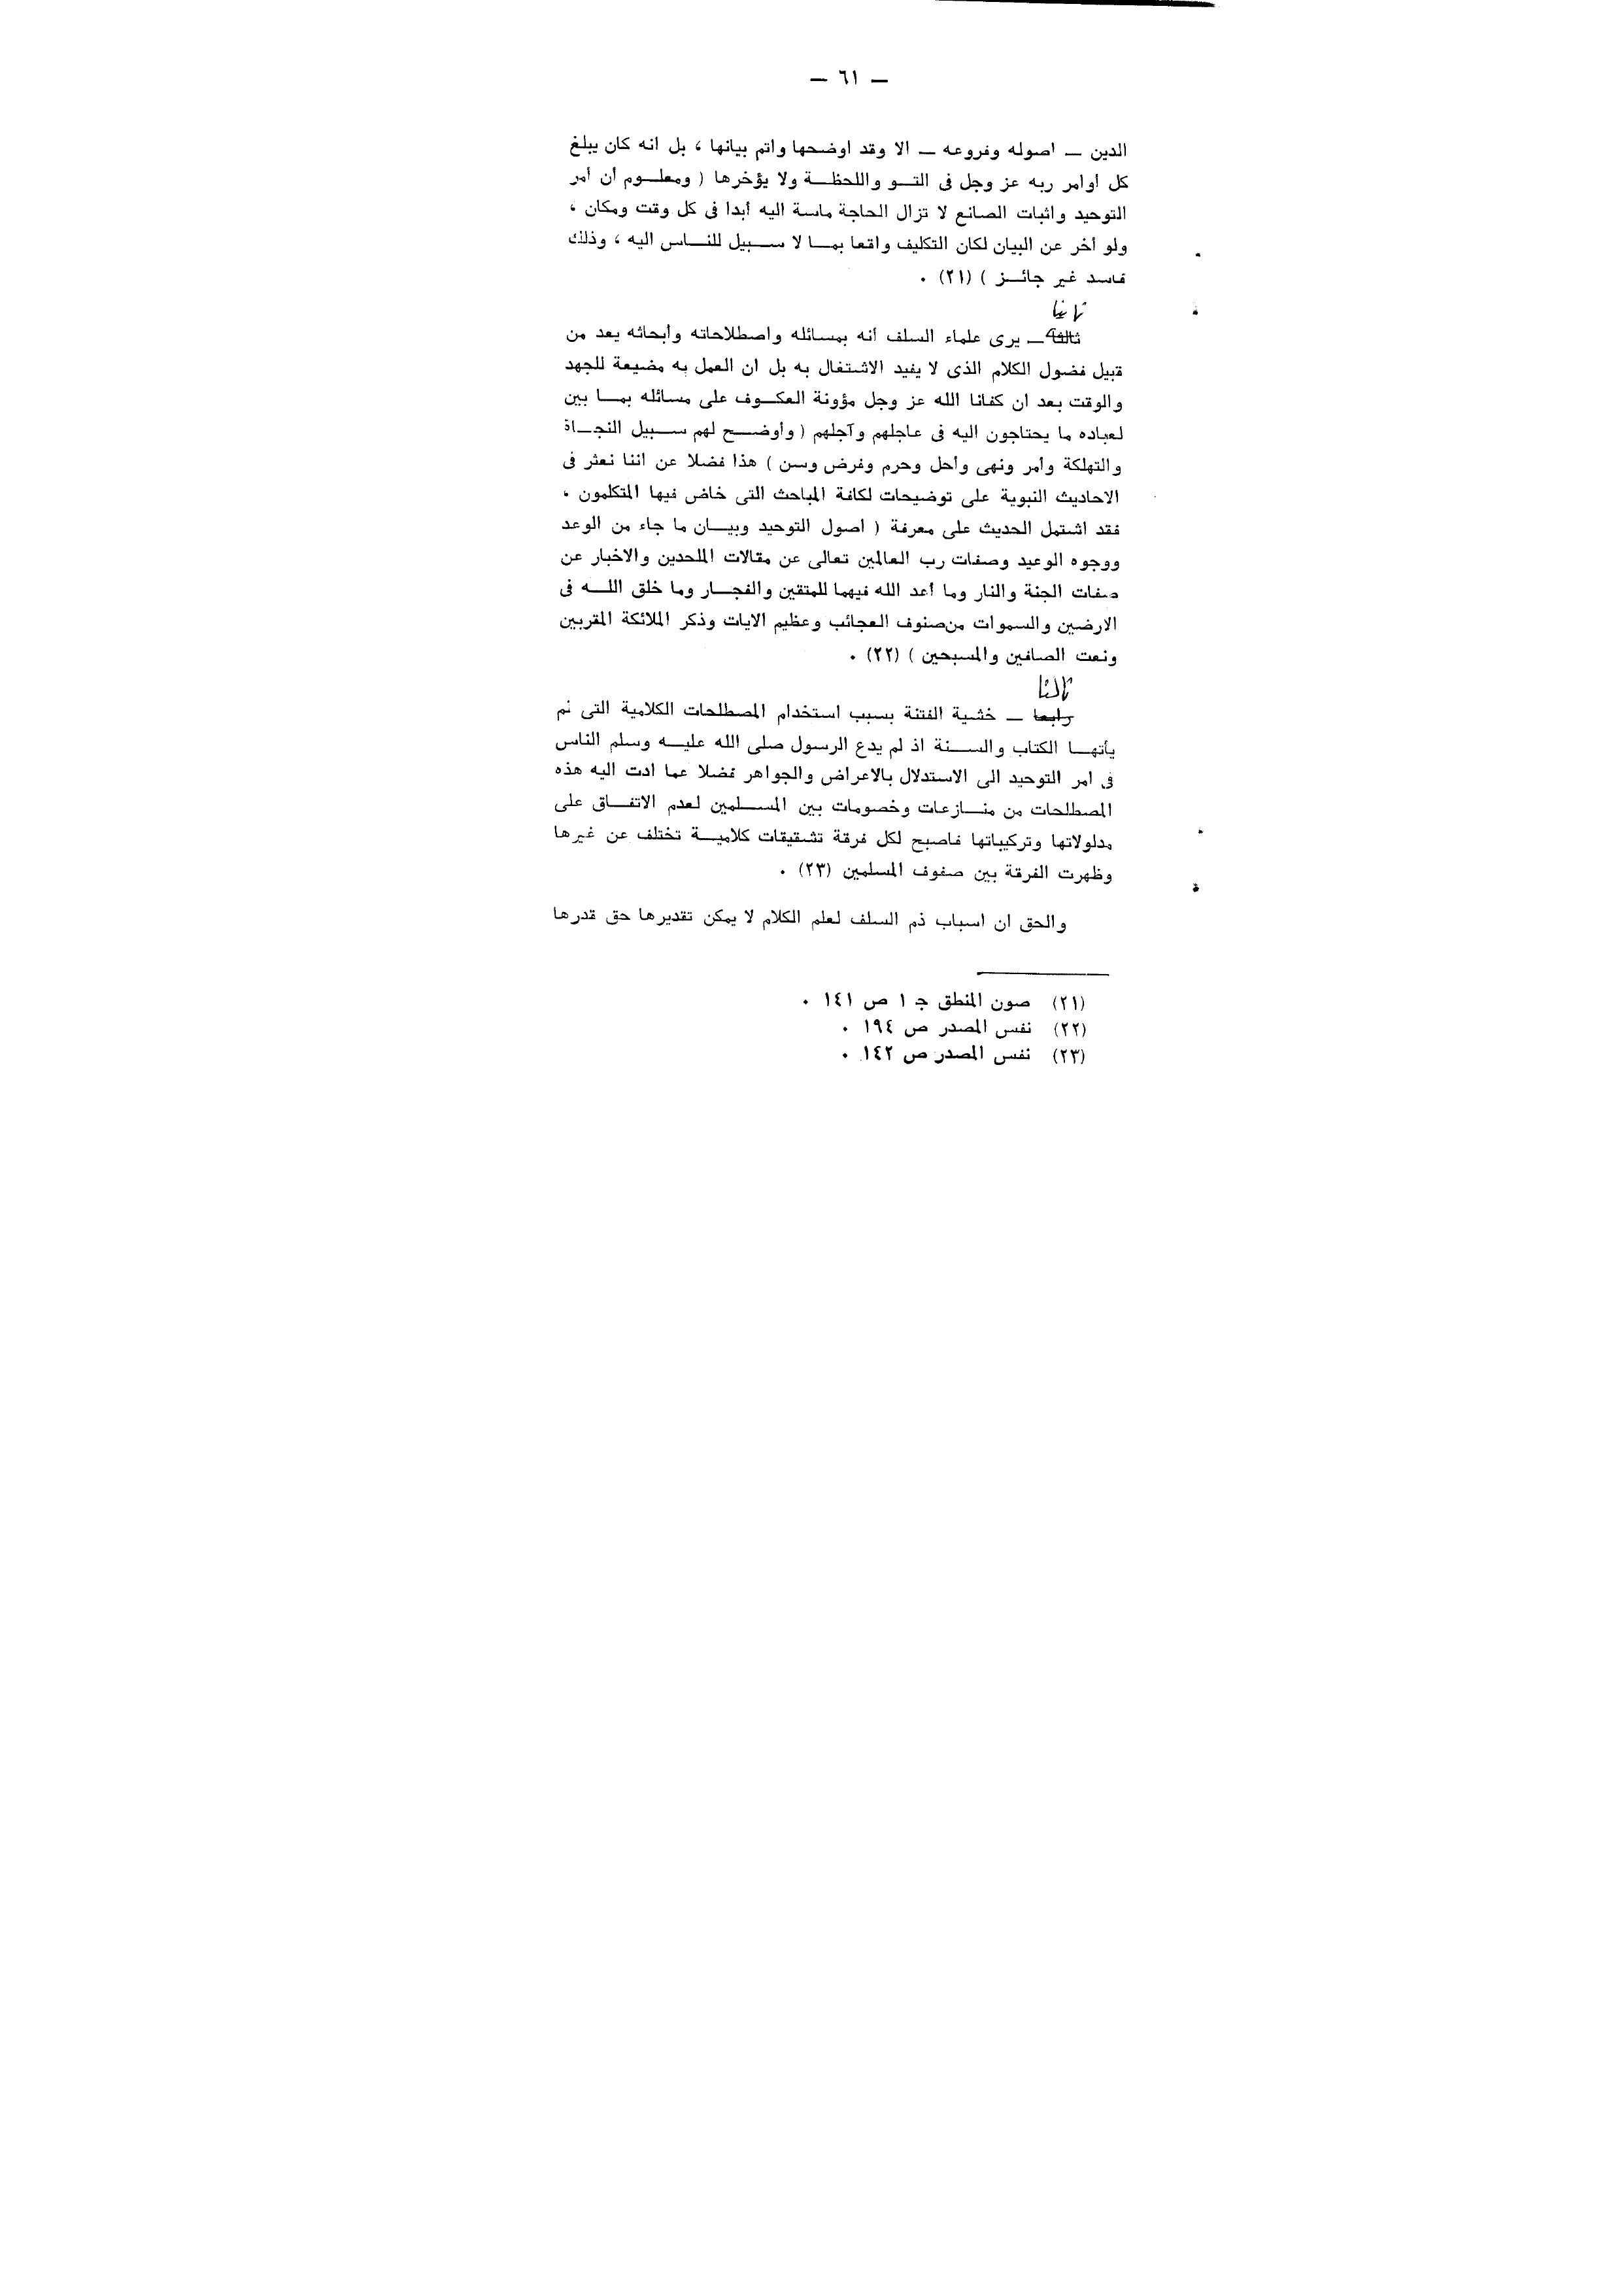 — ٦١ —
الدين — اصوله وفروعه — الا وقد اوضحها واتم بيانها ، بل انه كان يبلغ
كل أوامر ربه عز وجل فى التو واللحظة ولا يؤخرها ( ومعلوم أن أمر
التوحيد واثبات الصانع لا تزال الحاجة ماسة اليه أبدا فى كل وقت ومكان ،
ولو أخر عن البيان لكان التكليف واقعا بما لا سبيل للناس اليه ، وذلك
فاسد غير جائز ) (٢١) .
ثانيا
ثالثا — يرى علماء السلف أنه بمسائله واصطلاحاته وأبحاثه يعد من
قبيل فضول الكلام الذى لا يفيد الاشتغال به بل ان العمل به مضيعة للجهد
والوقت بعد ان كفانا الله عز وجل مؤونة العكوف على مسائله بما بين
لعباده ما يحتاجون اليه فى عاجلهم وآجلهم ( وأوضح لهم سبيل النجاة
والتهلكة وأمر ونهى وأحل وحرم وفرض وسن ) هذا فضلا عن اننا نعثر فى
الاحاديث النبوية على توضيحات لكافة المباحث التى خاض فيها المتكلمون ،
فقد اشتمل الحديث على معرفة ( اصول التوحيد وبيان ما جاء من الوعد
ووجوه الوعيد وصفات رب العالمين تعالى عن مقالات الملحدين والاخبار عن
صفات الجنة والنار وما أعد الله فيهما للمتقين والفجار وما خلق الله فى
الارضين والسموات من صنوف العجائب وعظيم الايات وذكر الملائكة المقربين
ونعت الصافين والمسبحين ) (٢٢) .
ثالثا
رابعا — خشية الفتنة بسبب استخدام المصطلحات الكلامية التى لم
يأتها الكتاب والسنة اذ لم يدع الرسول صلى الله عليه وسلم الناس
فى امر التوحيد الى الاستدلال بالاعراض والجواهر فضلا عما ادت اليه هذه
المصطلحات من منازعات وخصومات بين المسلمين لعدم الاتفاق على
مدلولاتها وتركيباتها فاصبح لكل فرقة تشقيقات كلامية تختلف عن غيرها
وظهرت الفرقة بين صفوف المسلمين (٢٣) .
والحق ان اسباب ذم السلف لعلم الكلام لا يمكن تقديرها حق قدرها
(٢١) صون المنطق ج ١ ص ١٤١ .
(٢٢) نفس المصدر ص ١٩٤ .
(٢٣) نفس المصدر ص ١٤٢ .